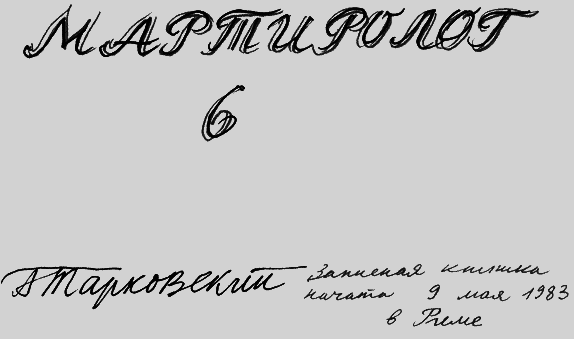 МАРТИРОЛОГ
6
А Тарковский
Записная книжка
начата 9 мая 1983
в Риме